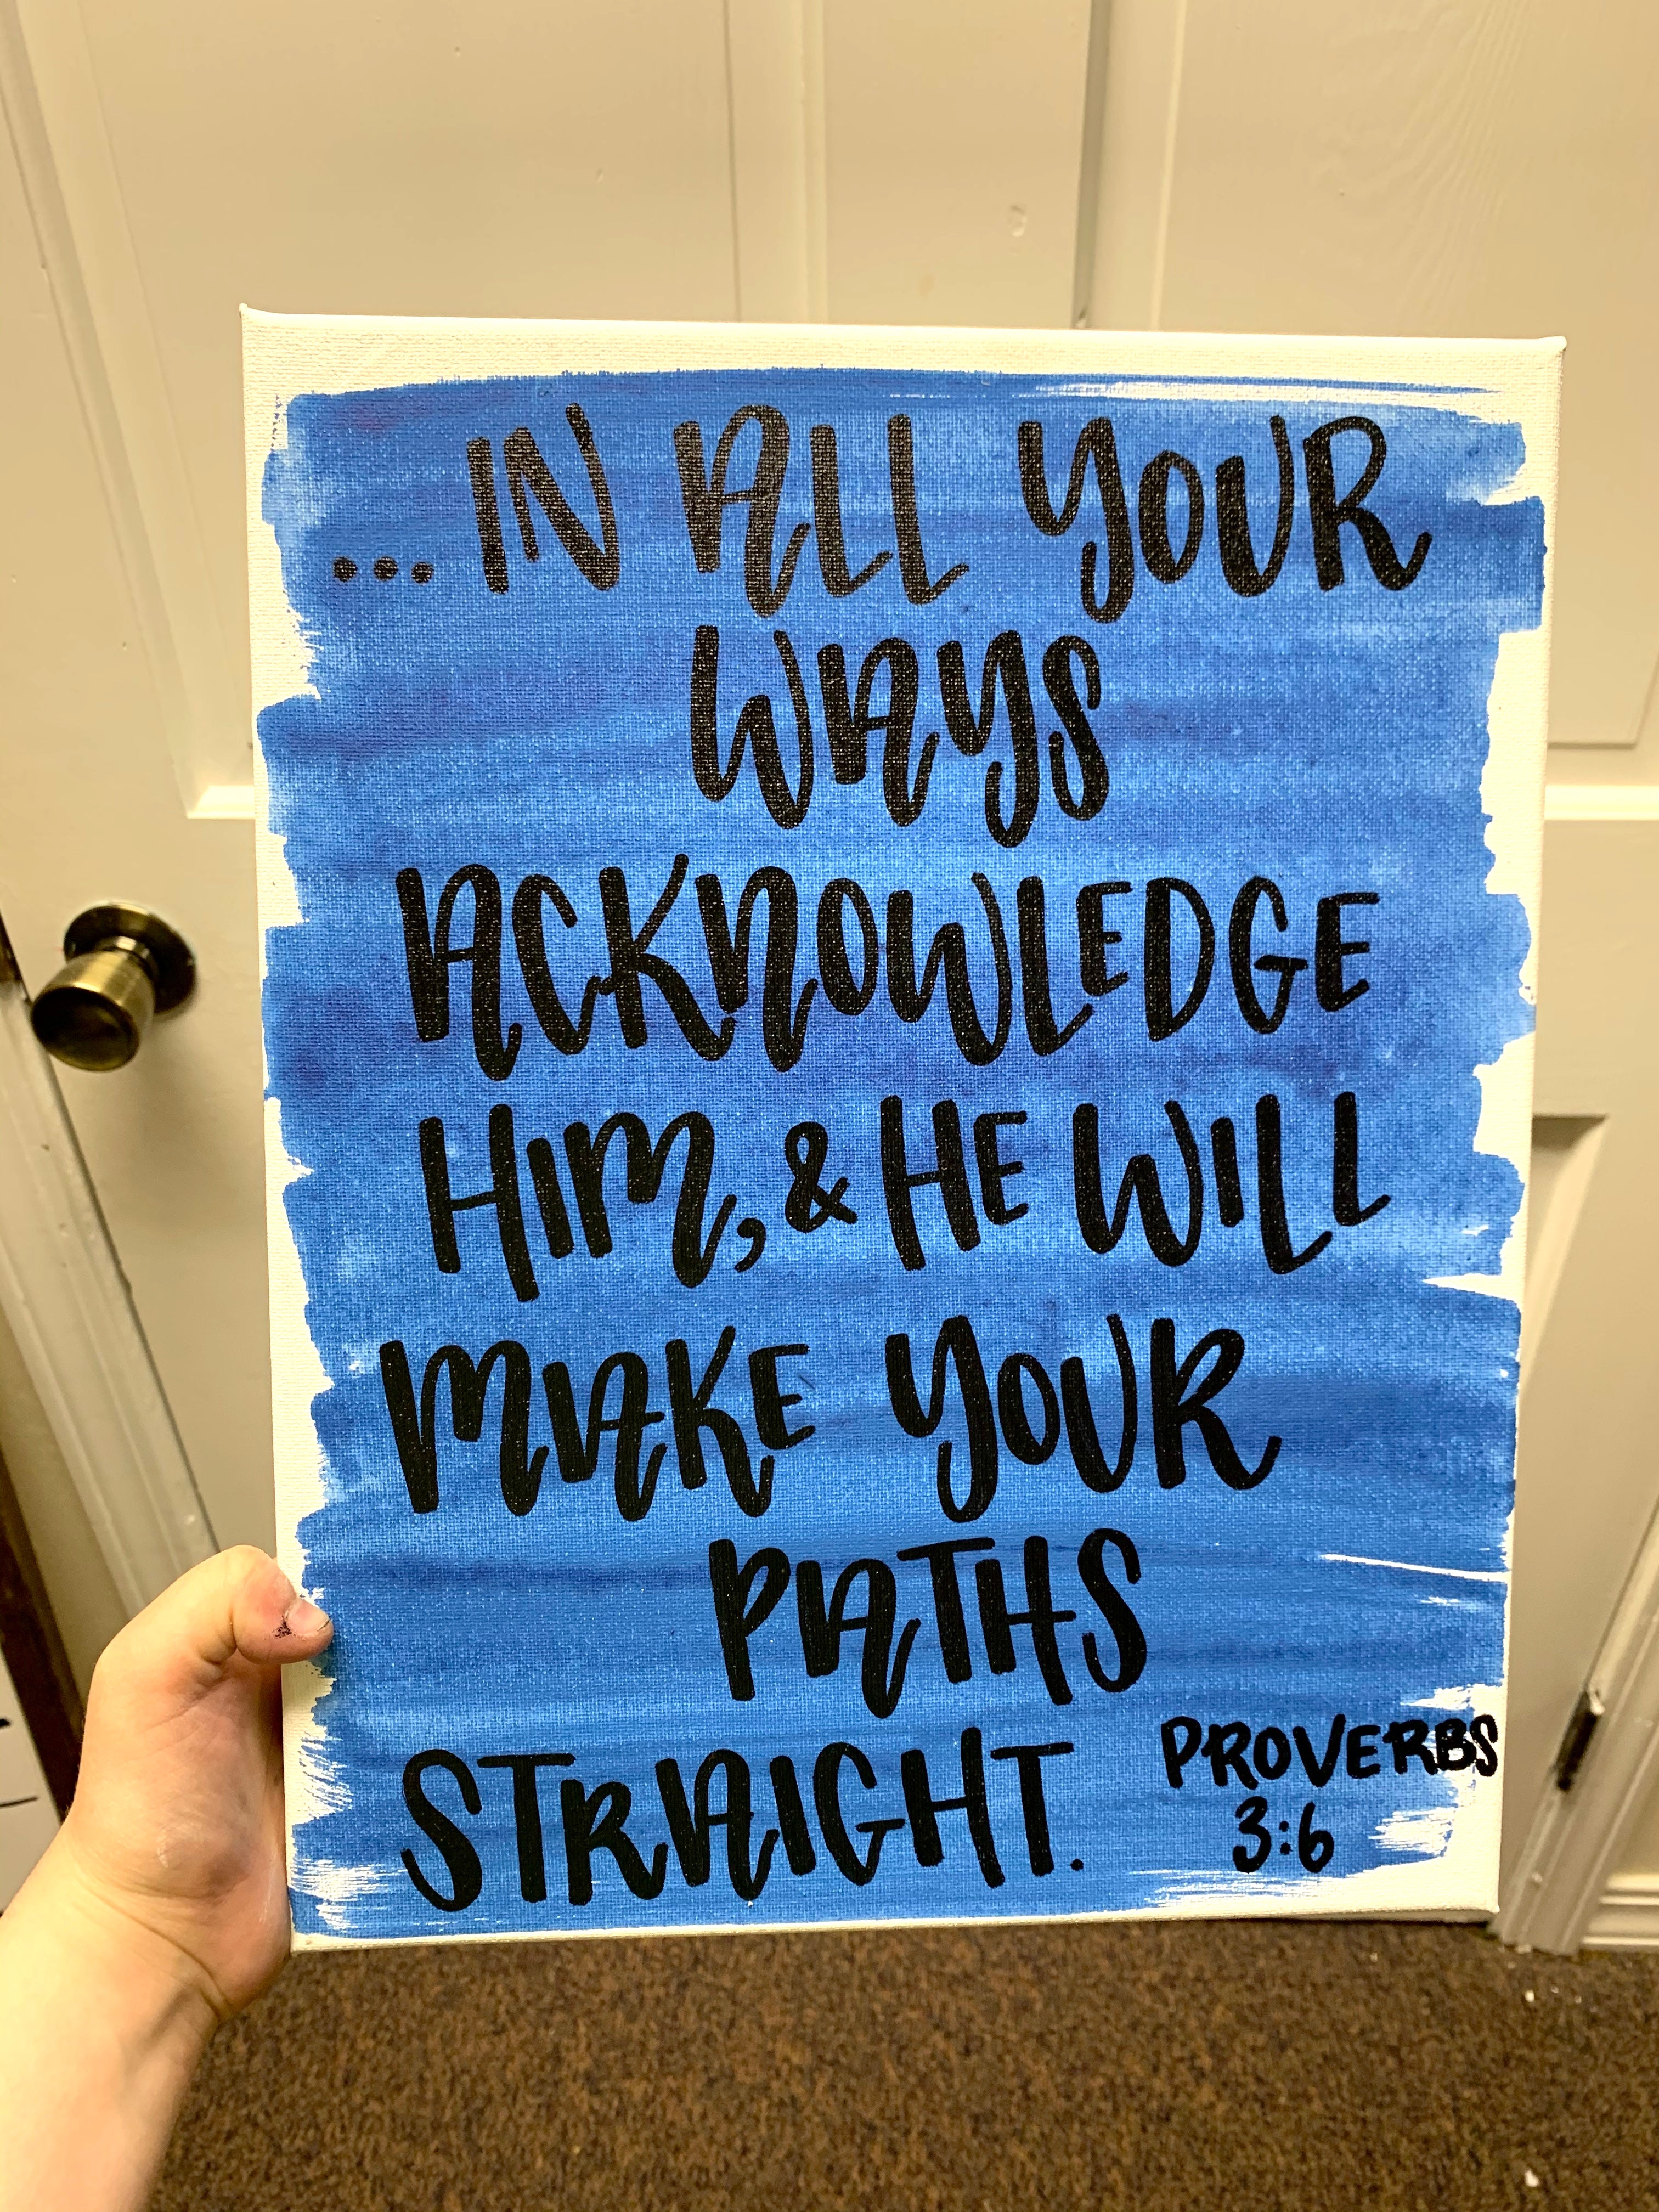 ...IN ALL YOUR
WAYS
ACKNOWLEDGE
HIM, & HE WILL
MAKE YOUR
PATHS
STRAIGHT.
PROVERBS
3:6